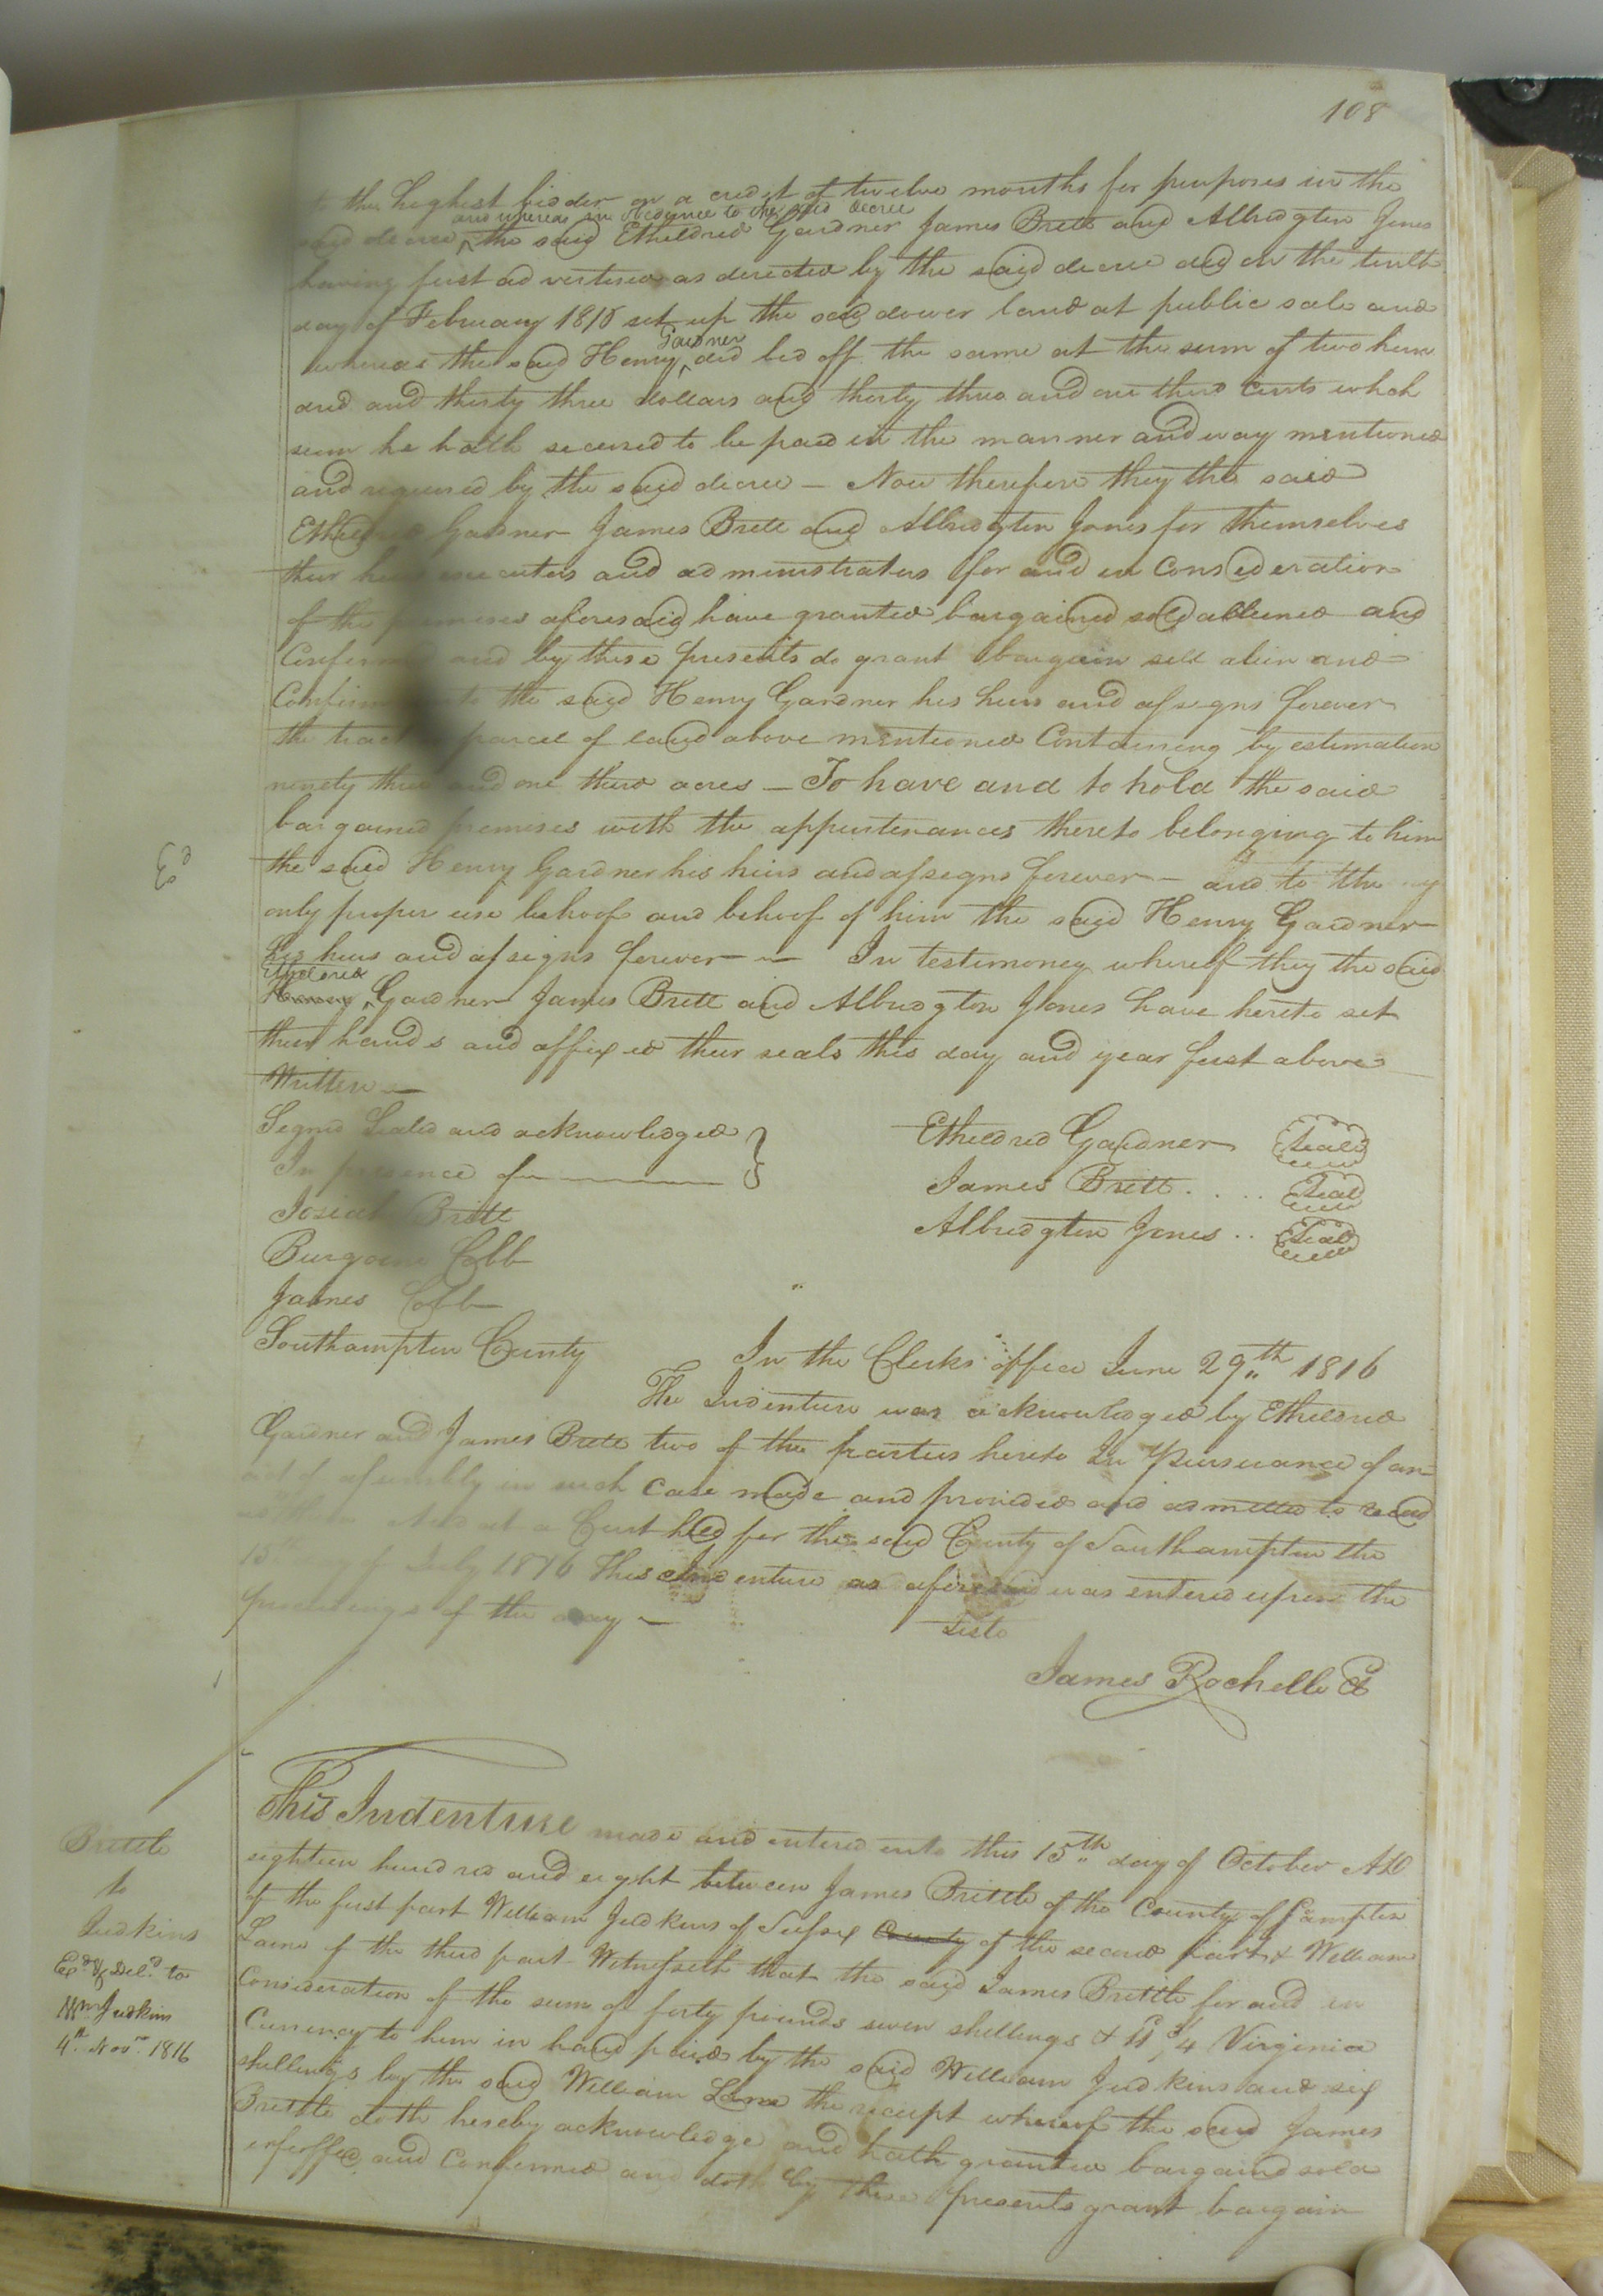 108
to the highest bidder on a credit of twelve months for purposes in the
and whereas in obedience to the said decree
said decree ^ the said Etheldred Gardner James Brett and Albridgton Jones
having first advertised as directed by the said decree did on the tenth
day of February 1816 set up the said dower land at public sale and
Gardner
whereas the said Henry ^ did bid off the same at the sum of two hun
dred and thirty three dollars and thirty three and one third cents which
sum he hath secured to be paid in the manner and way mentioned
and required by the said decree — Now therefore they the said
Etheldred Gardner James Brett and Albridgton Jones for themselves
their heirs executors and administrators for and in Consideration
of the premises aforesaid have granted bargained sold aliened and
Confirmed and by these presents do grant bargain sell alien and
Confirm unto the said Henry Gardner his heirs and assigns forever
the tract parcel of land above mentioned Containing by estimation
ninety three and one third acres — To have and to hold the said
bargained premises with the appurtenances thereto belonging to him
the said Henry Gardner his heirs and assigns forever — and to the
only proper use behoof and behoof of him the said Henry Gardner
his heirs and assigns forever — In testimoney whereof they the said
Etheldred
Henry ^ Gardner James Brett and Albridgton Jones have hereto set
their hands and affixed their seals this day and year first above
Written —
Signd Sealed and acknowledged
In presence of
Josiah Britt
Burgoine Cobb
James Cobb
Etheldred Gardner Seal
James Brett .... Seal
Albridgton Jones .. Seal
Southampton County In the Clerks office June 29th 1816
The Indenture was acknowledged by Etheldred
Gardner and James Brett two of the parties hereto In Pursuance of an
act of assembly in such Case made and provided and admitted to record
And at a Court held for the said County of Southampton the
15th day of July 1816 This Indenture as aforesaid was entered upon the
proceedings of the day —
Teste
James Rochelle Cl
Brittle
to
Judkins
Exd & Deld to
Wm Judkins
4th Novr 1816
This Indenture made and entered into this 15th day of October AD
eighteen hundred and eight between James Brittle of the County of S ampton
of the first part William Judkins of Sussex County of the second part & William
Lane of the third part Witnesseth that the said James Brittle for and in
Consideration of the sum of forty pounds seven shillings & 11d 3/4 Virginia
Currency to him in hand paid by the said William Judkins and six
shillings by the said William Lane the receipt whereof the said James
Brittle doth hereby acknowledge and hath granted bargaind sold
enfeoffed and Confirmed and doth by these presents grant bargain